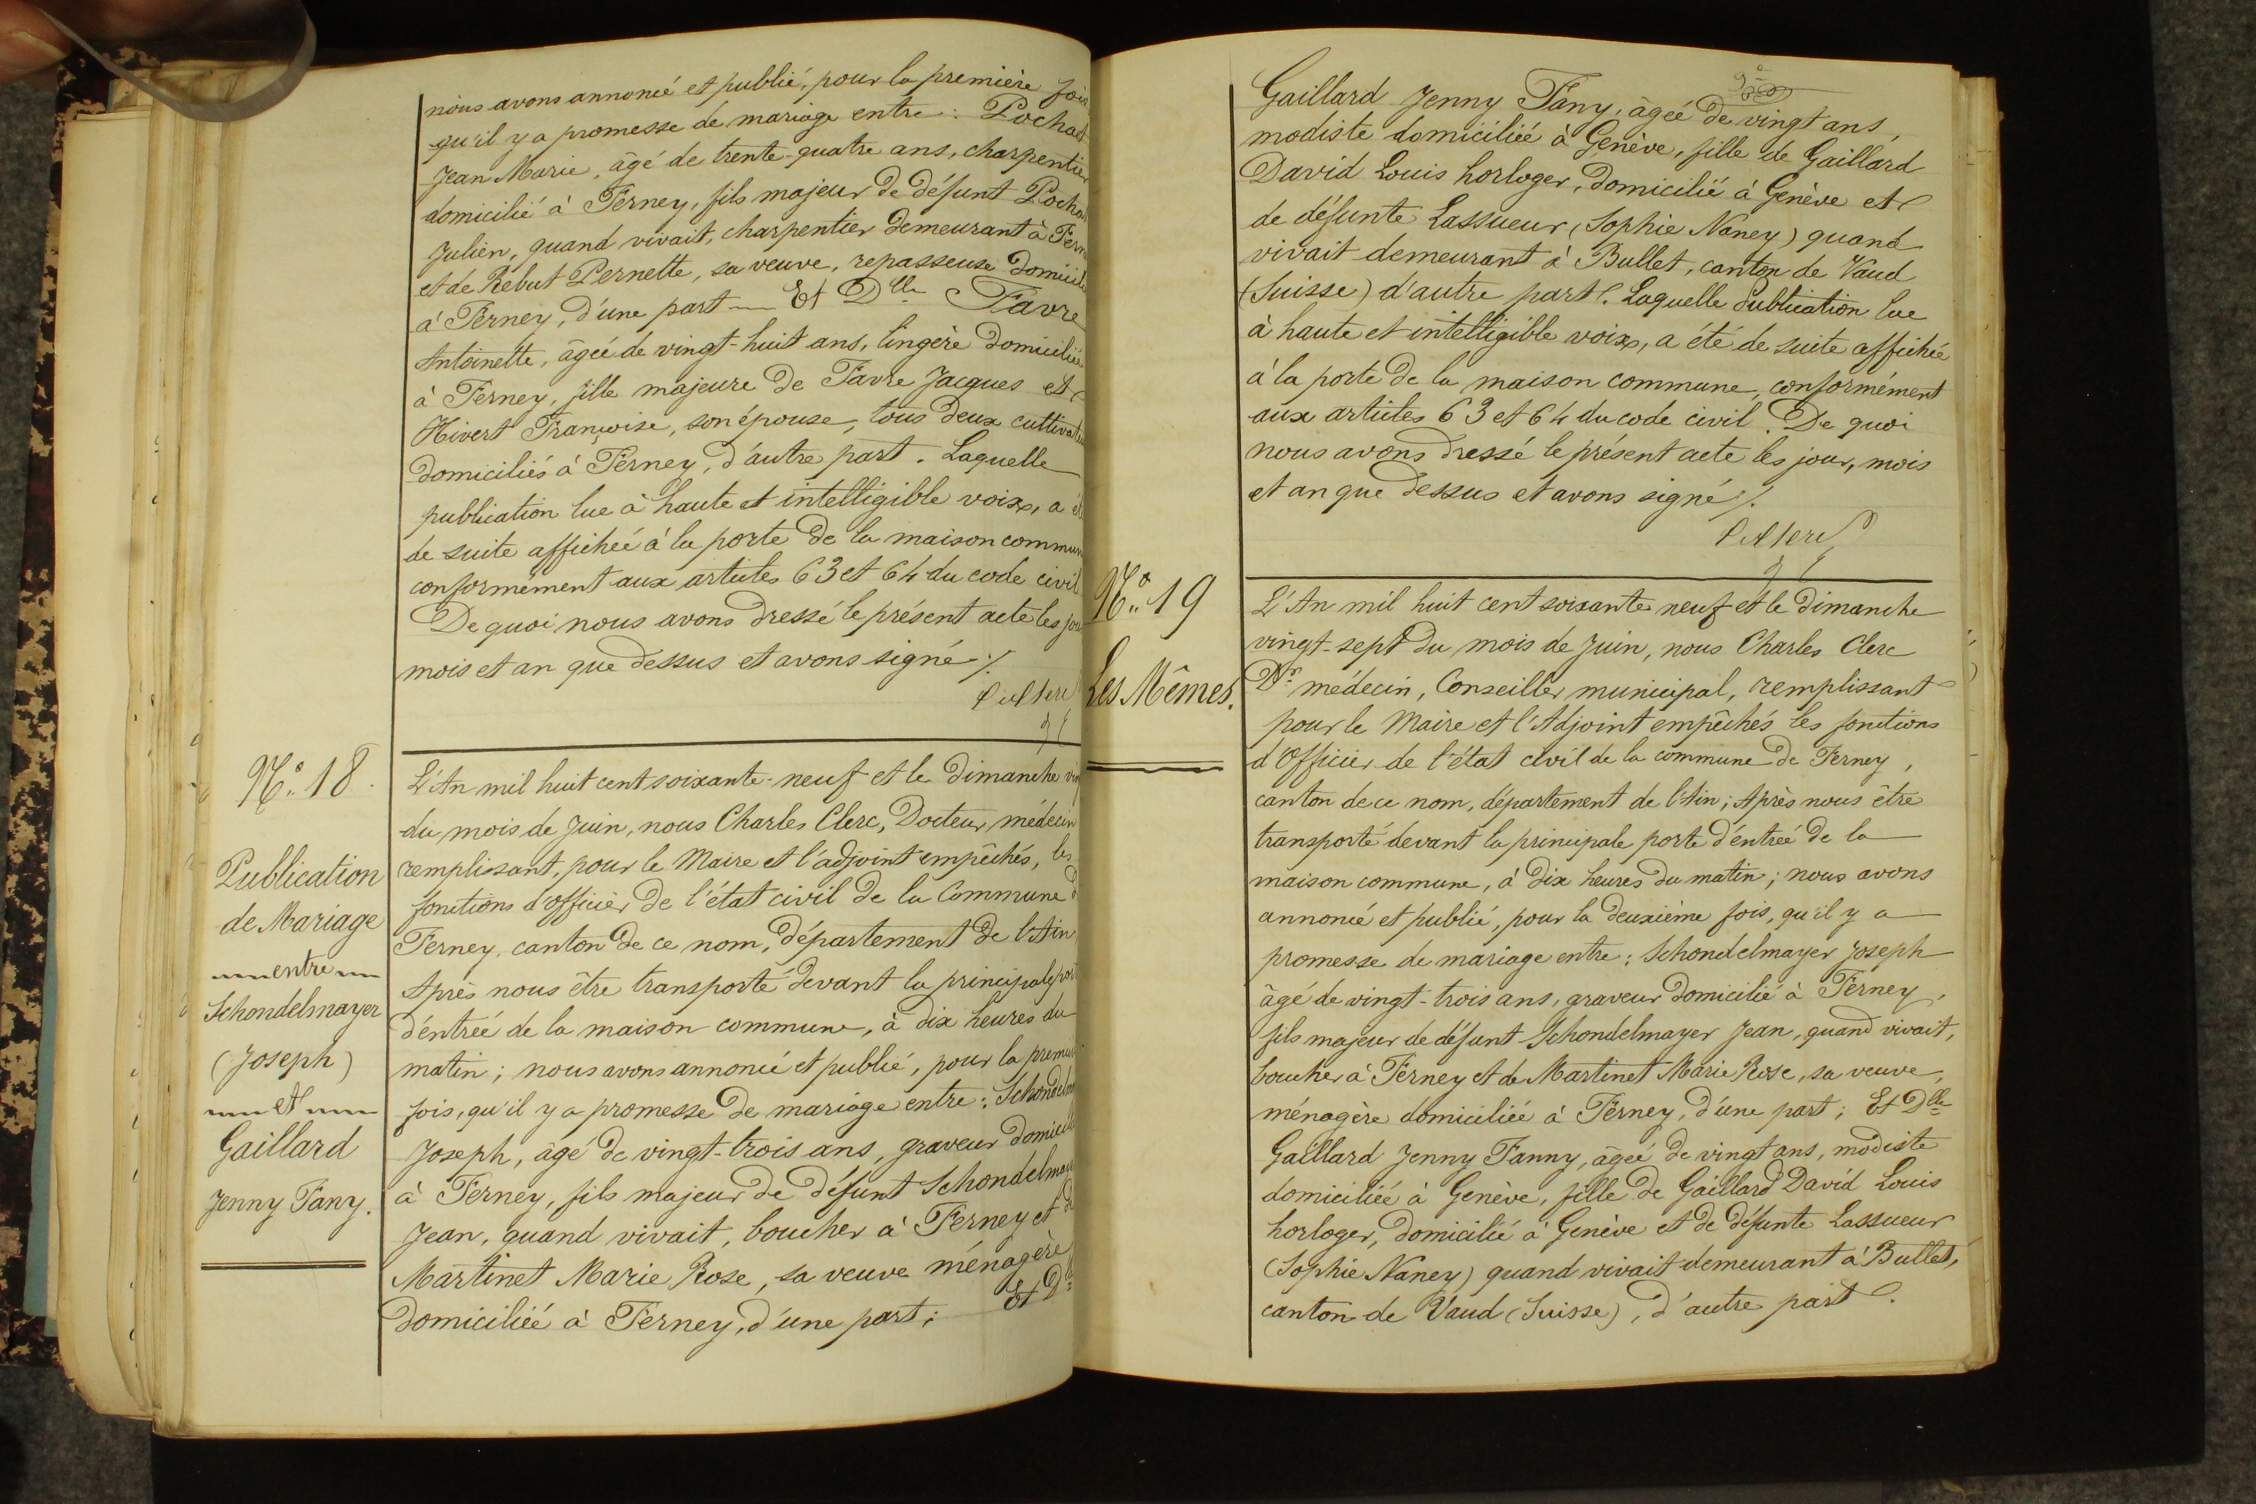 nous avons annoncé et publié, pour la première fois
qu'il y a promesse de mariage entre : Pochat
Jean Marie, âgé de trente-quatre ans, charpentier
domicilié à Ferney, fils majeur de défunt Pocha
Julien, quand vivait, charpentier demeurant à Fern
et de Rebut Pernette, sa veuve, repasseuse domicili
à Ferney, d'une part — Et Dlle Favre
Antoinette, âgée de vingt-huit ans, lingère domiciliée
à Ferney, fille majeure de Favre Jacques et
Hivert Françoise, son épouse, tous deux cultivate
domiciliés à Ferney, d'autre part. Laquelle
publication lue à haute et intelligible voix, a ét
de suite affichée à la porte de la maison commun
conformément aux articles 63 et 64 du code civil
De quoi nous avons dressé le présent acte les jou
mois et an que dessus et avons signé ./.
N° 18.
Publication
de Mariage
entre
Schondelmayer
(Joseph)
et
Gaillard
Jenny Fany.
L'An mil huit cent soixante-neuf et le dimanche vin
du mois de Juin, nous Charles Clerc, Docteur médecin
remplissant, pour le Maire et l'adjoint empêchés, les
fonctions d'officier de l'état civil de la Commune d
Ferney, canton de ce nom, département de l'Ain
Après nous être transporté devant la principale port
d'entrée de la maison commune, à dix heures du
matin ; nous avons annoncé et publié, pour la premiè
fois, qu'il y a promesse de mariage entre : Schondelm
Joseph, âgé de vingt-trois ans, graveur domicili
à Ferney, fils majeur de défunt Schondelmaye
Jean, quand vivait, boucher à Ferney et de
Martinet Marie Rose, sa veuve ménagère
domiciliée à Ferney, d'une part ; Et Dlle
Gaillard Jenny Fany, âgée de vingt ans,
modiste domiciliée à Genève, fille de Gaillard
David Louis horloger, domicilié à Genève et
de défunte Lassueur (Sophie Naney) quand
vivait demeurant à Bullet, canton de Vaud
(Suisse) d'autre part. Laquelle Publication lue
à haute et intelligible voix, a été de suite affichée
à la porte de la maison commune, conformément
aux articles 63 et 64 du code civil. De quoi
nous avons dressé le présent acte les jour, mois
et an que dessus et avons signé ./.
N° 19
Les Mêmes.
L'An mil huit cent soixante neuf et le dimanche
vingt-sept du mois de Juin, nous Charles Clerc
Dr médecin, Conseiller municipal, remplissant
pour le Maire et l'Adjoint empêchés les fonctions
d'Officier de l'état civil de la commune de Ferney,
canton de ce nom, département de l'Ain ; Après nous être
transporté devant la principale porte d'entrée de la
maison commune, à dix heures du matin ; nous avons
annoncé et publié, pour la deuxième fois, qu'il y a
promesse de mariage entre : Schondelmayer Joseph
âgé de vingt-trois ans, graveur domicilié à Ferney,
fils majeur de défunt Schondelmayer Jean, quand vivait,
boucher à Ferney et de Martinet Marie Rose, sa veuve,
ménagère domiciliée à Ferney, d'une part ; Et Dlle
Gaillard Jenny Fanny, âgée de vingt ans, modiste
domiciliée à Genève, fille de Gaillard David Louis
horloger, domicilié à Genève et de défunte Lassueur
(Sophie Naney) quand vivait demeurant à Bullet,
canton de Vaud (Suisse), d'autre part.